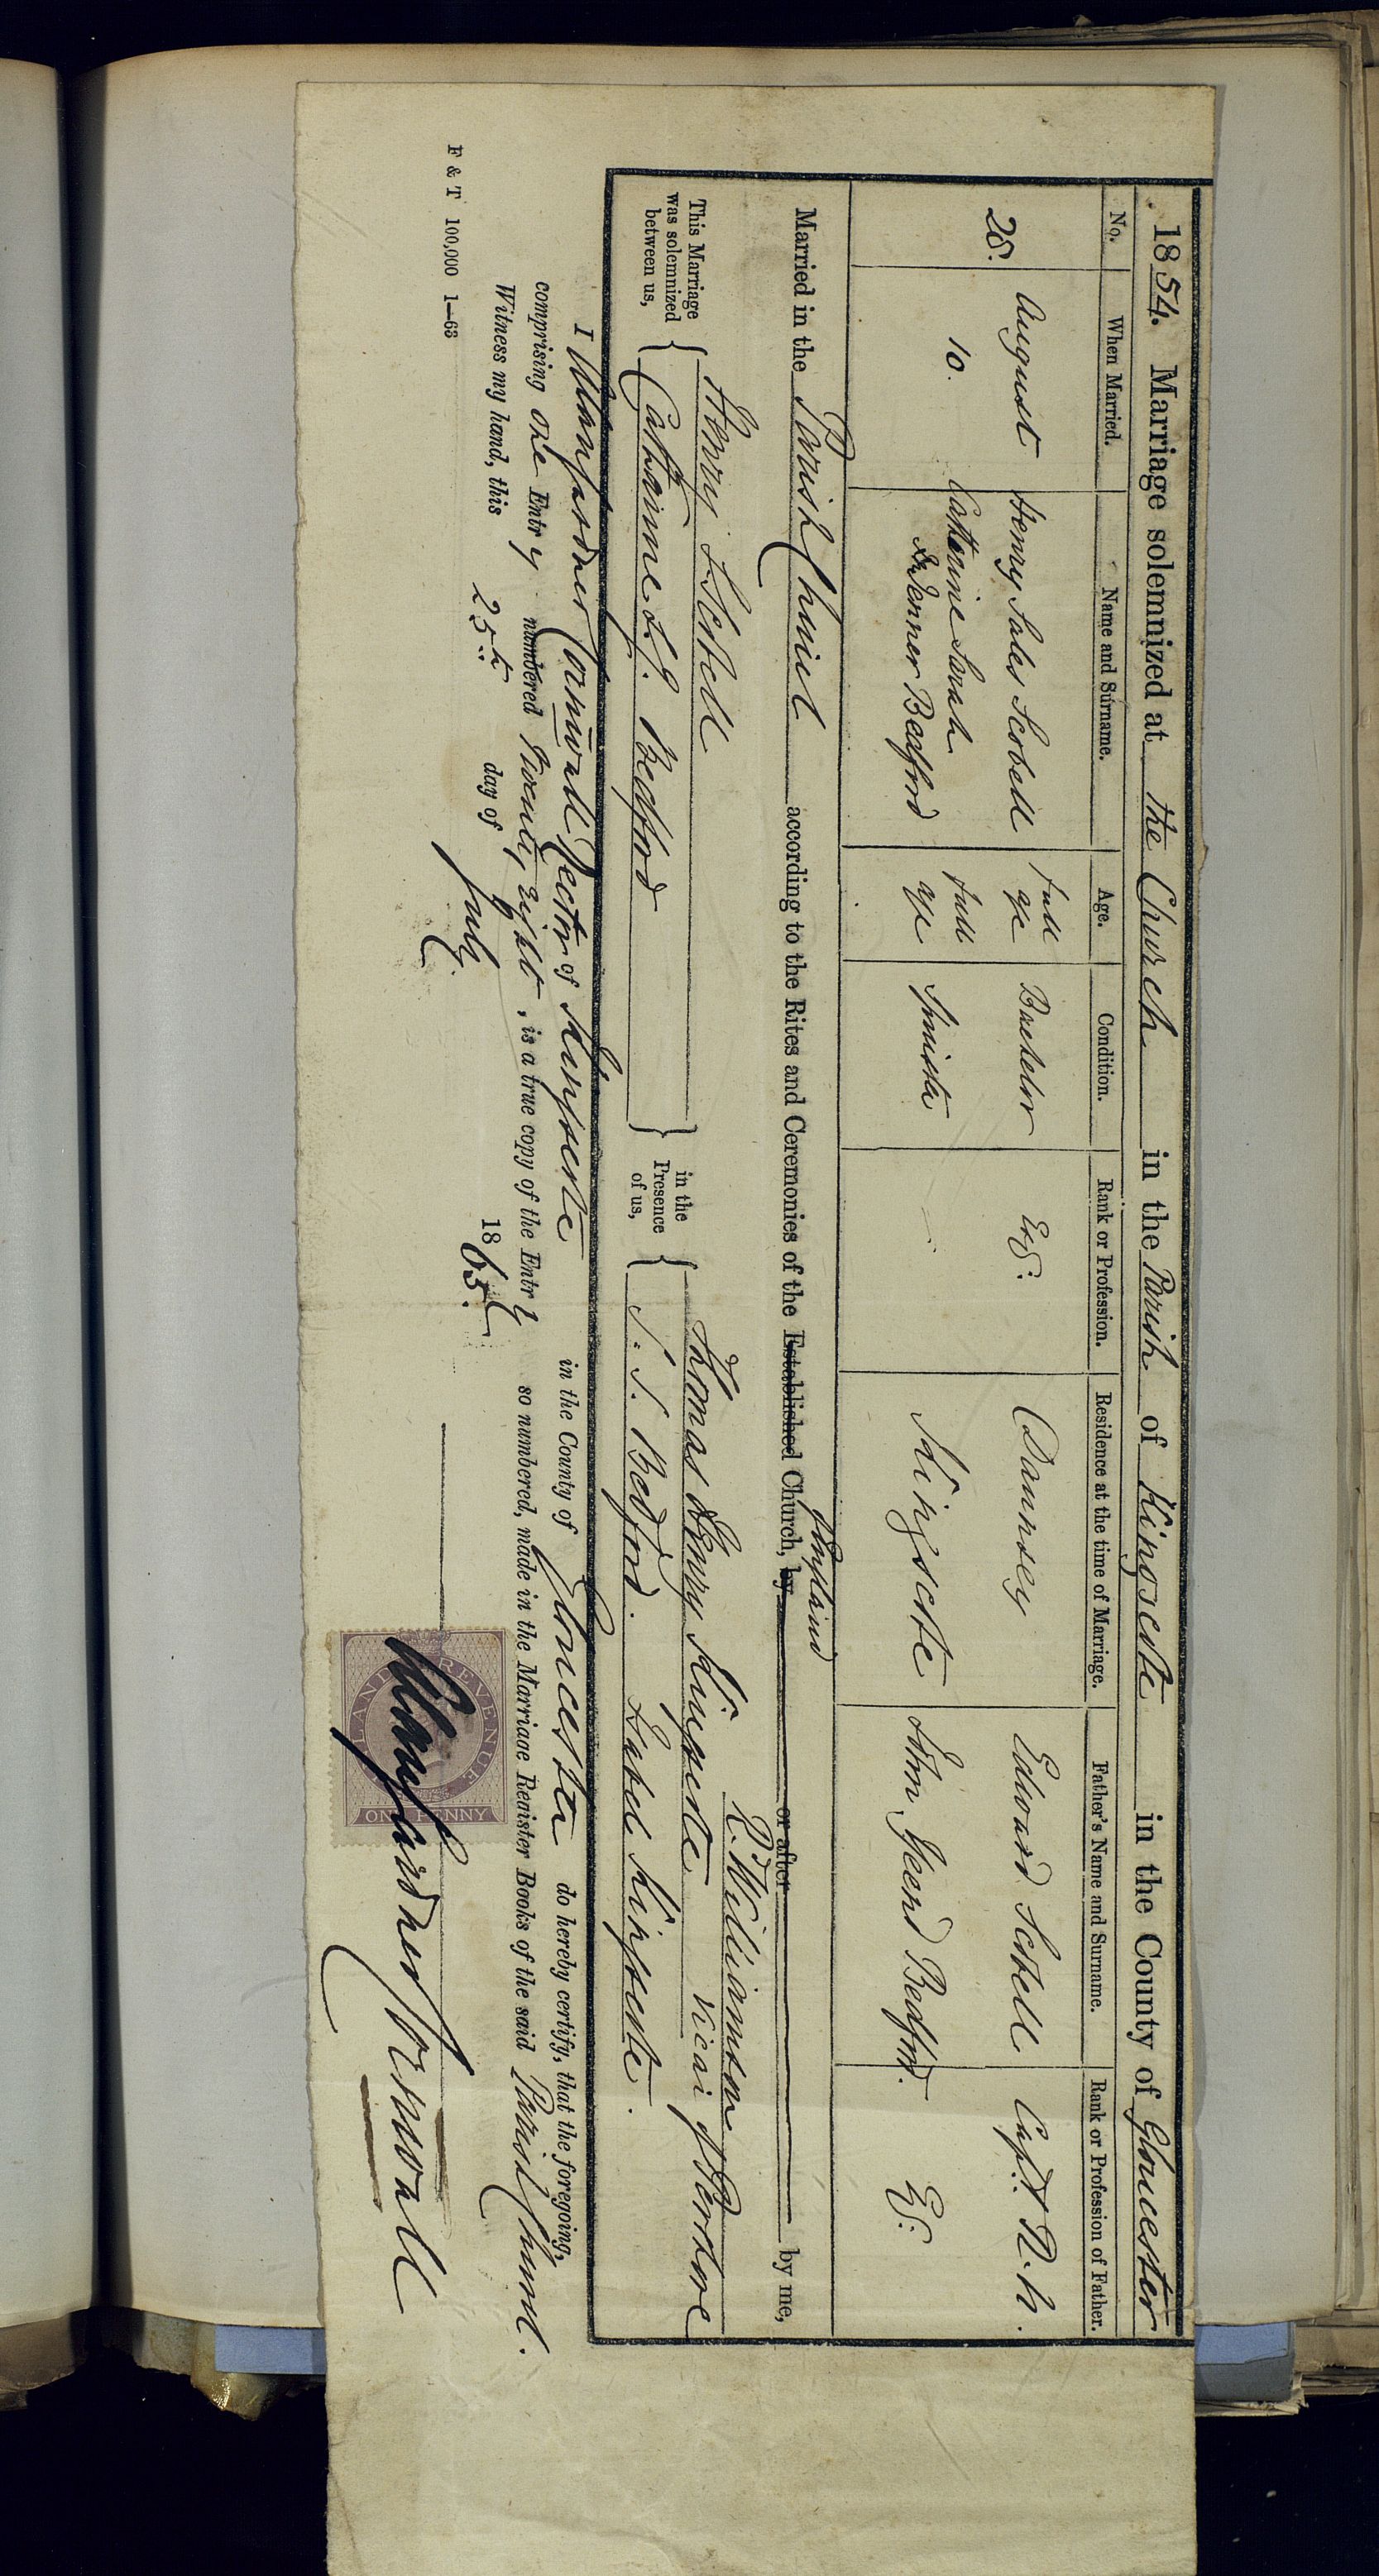 1854. Marriage solemnized at the Church in the Parish of Kingscote in the County of Gloucester
No. When Married. Name and Surname. Age. Condition. Rank or Profession. Residence at the time of Marriage. Father's Name and Surname. Rank or Profession of Father.
28. August 10. Henry Sales Scobell full age Bachelor Esq: Dauntsey Edward Scobell Capt. R.N.
Catherine Sarah Jenner Bedford full age Spinster Kingscote John Yeend Bedford. Esq:
Married in the Parish Church according to the Rites and Ceremonies of the Established Church, by or after by me,
of England
R. Williamson
This Marriage was solemnized between us, Henry S. Scobell in the Presence of us, Thomas Henry Kingscote Vicar of Pershore
Catharine S. J. Bedford S. S. Bedford. Isabel Kingscote.
I Alan Gardner Cornwall Rector of Kingscote in the County of Gloucester do hereby certify, that the foregoing,
comprising one Entry numbered Twenty Eight, is a true copy of the Entry so numbered, made in the Marriage Register Books of the said Parish Church.
Witness my hand, this 25th day of July. 1865.
INLAND REVENUE
ONE PENNY
Alan Gardner Cornwall
F & T 100,000 1—63